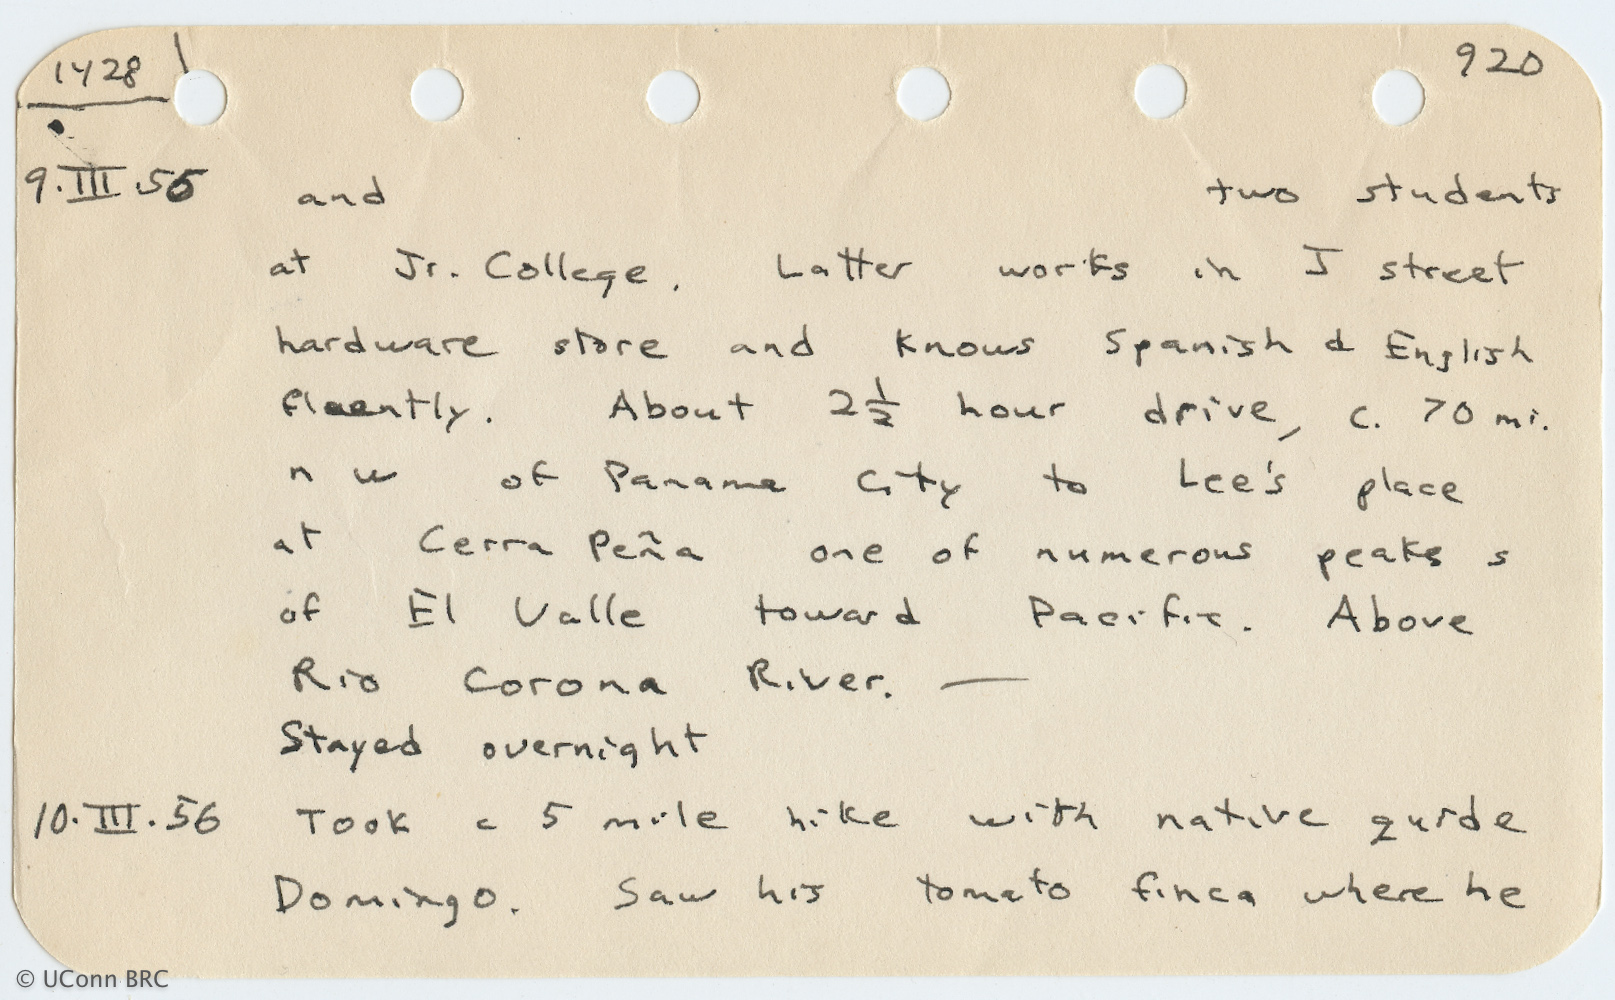 1428
920
9.III.56 and two students
at Jr. College. Latter works in J street
hardware store and knows Spanish & English
fluently. About 2½ hour drive, c. 70 mi.
n w of Panama City to Lee's place
at Cerra Peña one of numerous peaks s
of El Valle toward Pacific. Above
Rio Corona River. —
Stayed overnight
10.III.56 Took a 5 mile hike with native guide
Domingo. Saw his tomato finca where he
© UConn BRC